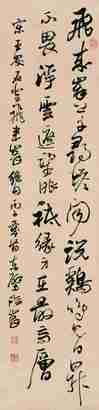 飛來峯上千尋塔聞說鷄鳴見日昇
不畏浮雲遮望眼祗緣身在最高層
宋王安石登飛來峯